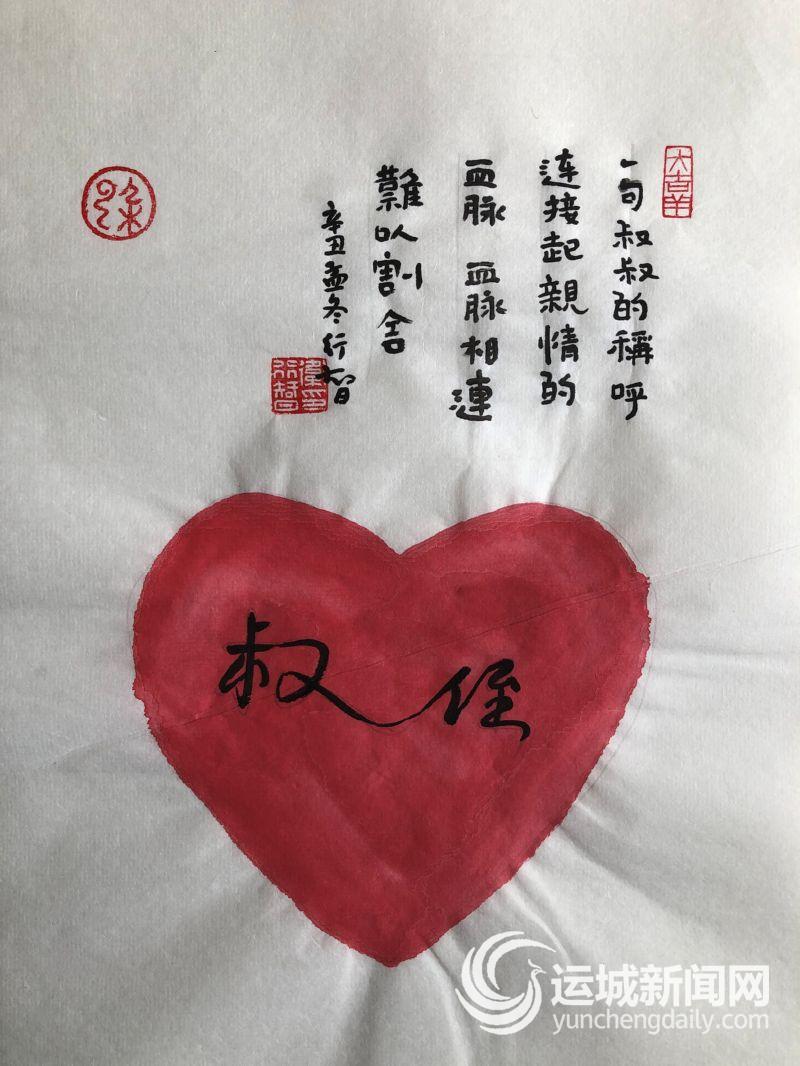 大吉羊
一句叔叔的稱呼
连接起親情的
血脉 血脉相連
難以割舍
辛丑孟冬行智
叔侄
运城新闻网
yunchengdaily.com